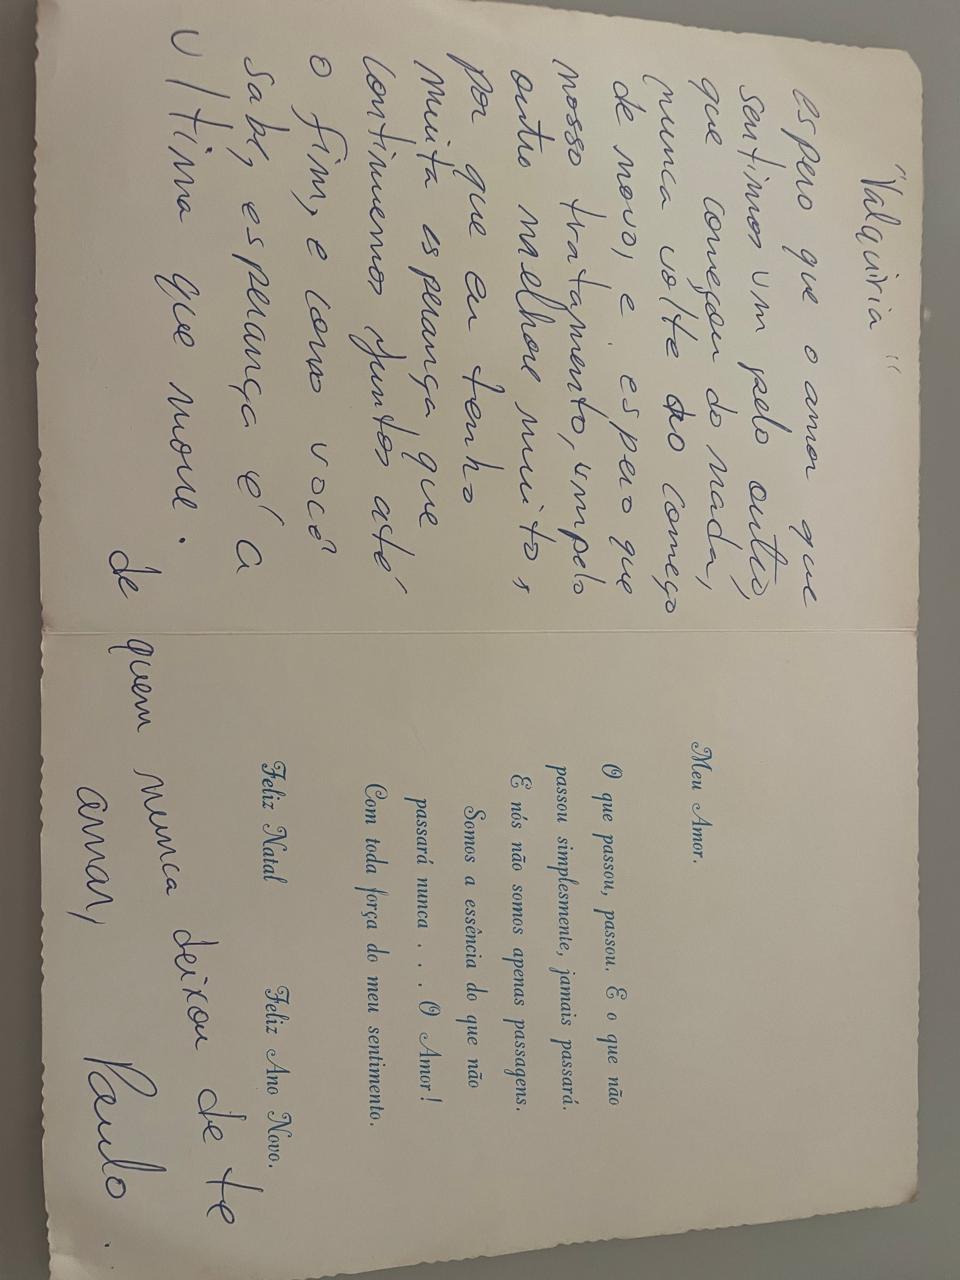 "Valquiria"
espero que o amor que
sentimos um pelo outro,
que começou do nada,
nunca volte ao começo
de novo, e espero que
nosso tratamento, um pelo
outro maelhore muito,
por que eu tenho
muita esperança que
continuemos juntos até
o fim, e como você
sabe, esperança é a
ultima que morre.
de quem nunca deixou de te
amar, Paulo.
Meu Amor.
O que passou, passou. E o que não
passou simplesmente, jamais passará.
E nós não somos apenas passagens.
Somos a essência do que não
passará nunca . . . O Amor!
Com toda força do meu sentimento.
Feliz Natal Feliz Ano Novo.